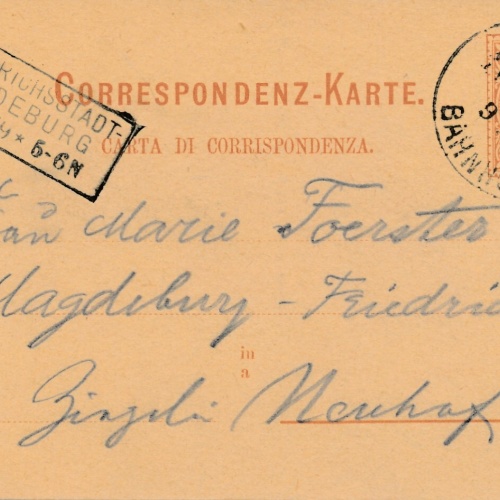 RICHSSTADT-
DEBURG
* 5-6N
CORRESPONDENZ-KARTE.
CARTA DI CORRISPONDENZA.
9
BAHNH
Marie Foerster
Magdeburg - Friedri
in
a
Neuhof